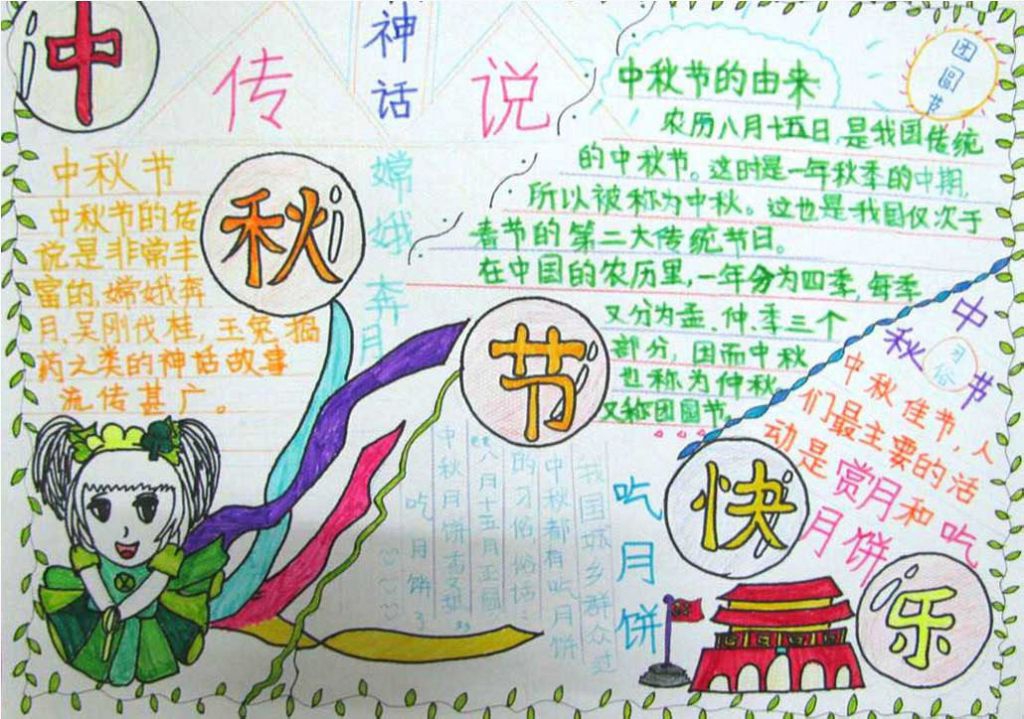 中秋节快乐
神话
传说
中秋节
中秋节的传
说是非常丰
富的,嫦娥奔
月,吴刚伐桂,玉兔捣
药之类的神话故事
流传甚广。
嫦娥奔月
中秋节的由来
农历八月十五日,是我国传统
的中秋节。这时是一年秋季的中期,
所以被称为中秋。这也是我国仅次于
春节的第二大传统节日。
在中国的农历里,一年分为四季,每季
又分为孟、仲、季三个
部分,因而中秋
也称为仲秋
又称团园节。
团圆节
中秋节
习俗
中秋佳节,人
们最主要的活
动是赏月和吃
月饼
吃月饼
我国城乡群众过
中秋都有吃月饼
的习俗,俗话
八月十五月正圆
中秋月饼香又甜
吃月饼